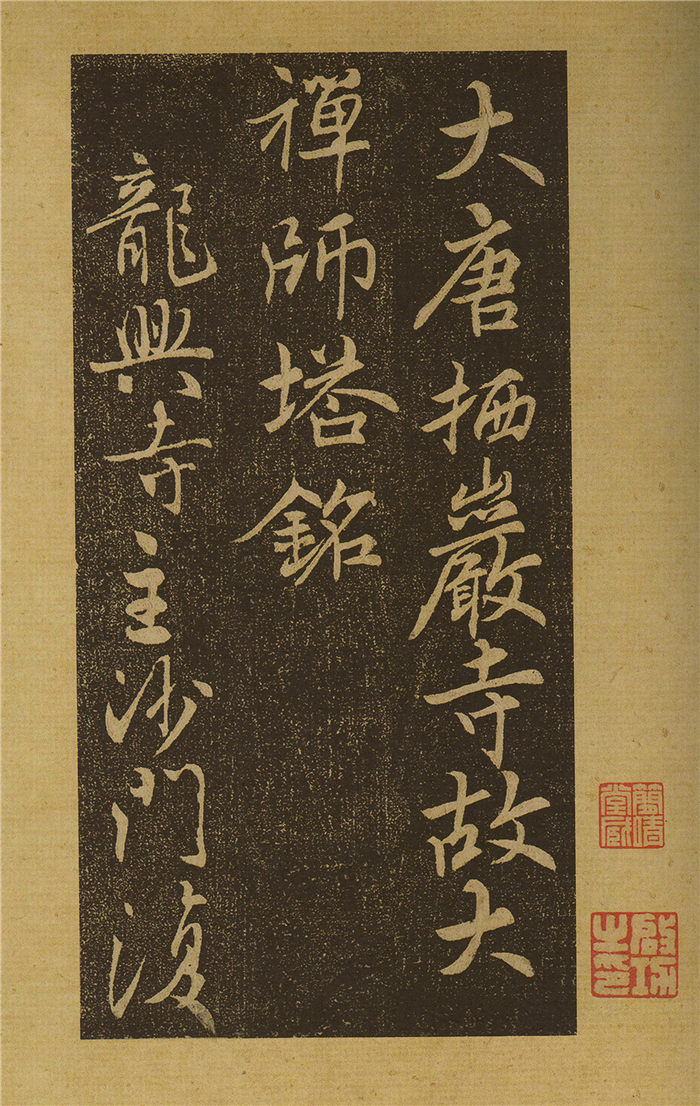 大唐栖巖寺故大
禪師塔銘
龍興寺主沙門復
啟功之印